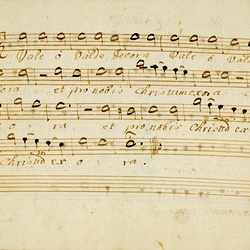 Vale ô Valde Decora Vale ô Val
cora et pro nobis Christum exora
o ra et pro nobis Christū ex
Christū ex o ra.